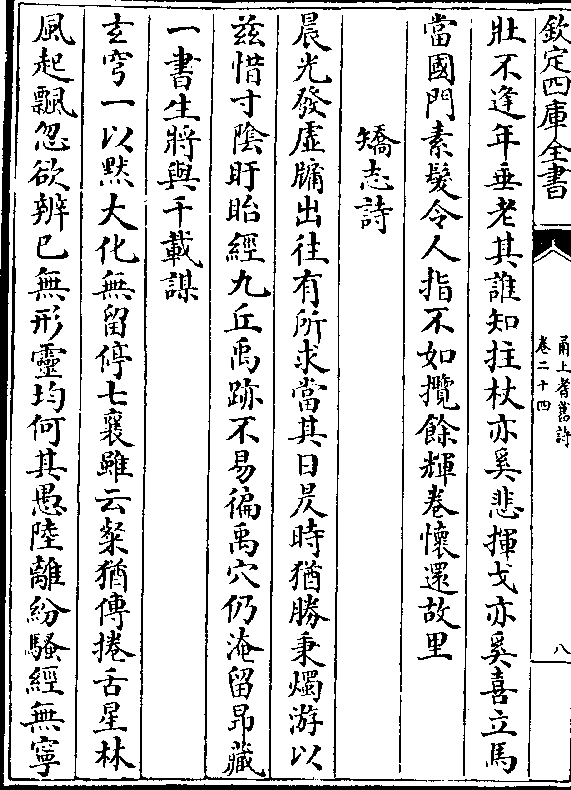 欽定四庫全書
甬上耆舊詩
卷二十四
八
壯不逢年垂老其誰知拄杖亦奚悲揮戈亦奚喜立馬
當國門素髮令人指不如攬餘輝卷懷還故里
矯志詩
晨光發虛牖出往有所求當其日昃時猶勝秉燭游以
兹惜寸陰盱眙經九丘禹跡不易徧禹穴仍淹留昻藏
一書生將與千載謀
玄穹一以黙大化無留停七襄雖云粲猶傳捲舌星林
風起飄忽欲辨已無形靈均何其愚陸離紛騷經無寧